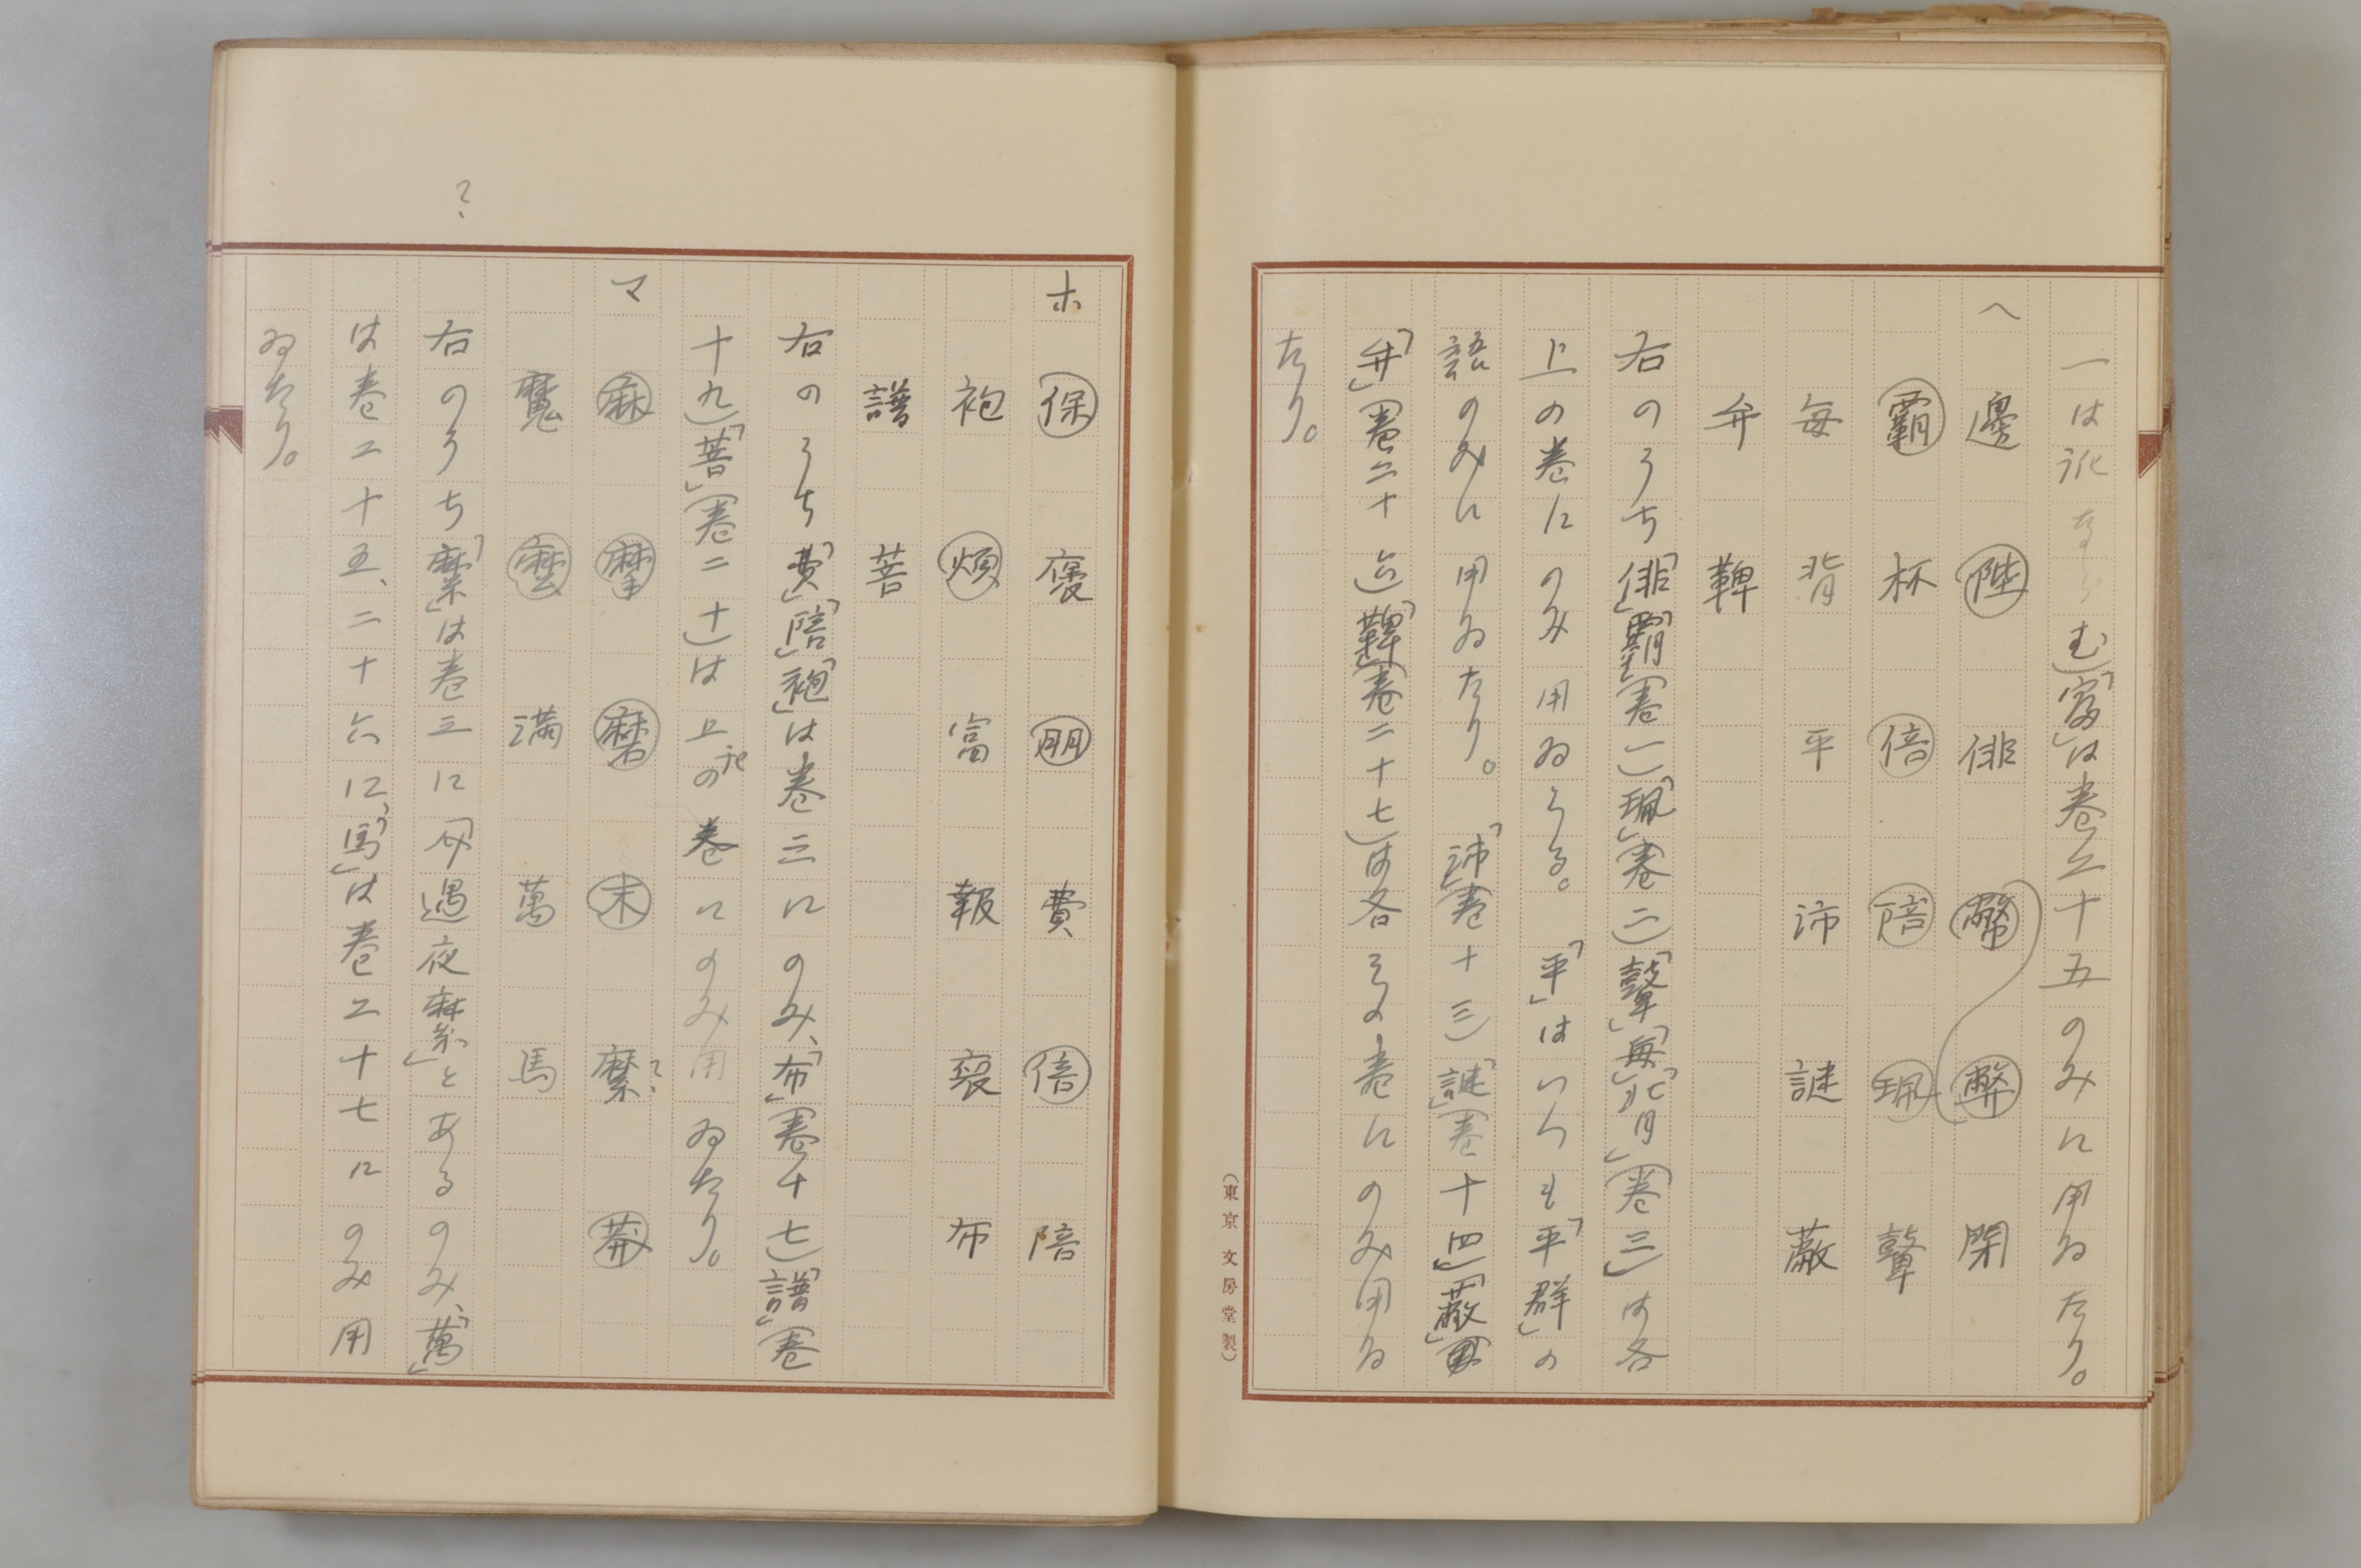 一は訛なら む)「富」は卷二十五のみに用ゐたり。
ヘ 邊 陛 俳 幣 弊 閉
覇 杯 倍 陪 珮 鼙
毎 背 平 沛 謎 蔽
弁 鞞
右のうち「俳」「覇」(卷一)「珮」(卷二)「鼙」「毎」「背」(卷三)は各
上の卷にのみ用ゐらる。「平」はいつも「平群」の
語のみに用ゐたり。「沛」(卷十三)「謎」(卷十四)「蔽」
「弁」(卷二十六)「鞞」(卷二十七)は各その卷にのみ用ゐ
たり。
(東京 文房堂製)
ホ 保 褒 費 朋 倍 陪
袍 煩 富 報 裒 布
譜 菩
右のうち「費」「陪」「袍」は卷三にのみ、「布」(卷十七)「譜」(卷
十九)「菩」(卷二十)は上記の卷にのみ用ゐたり。
マ 麻 摩 磨 末 縻? 莽
魔 麼 満 萬 馬
?
右のうち「縻」は卷三に「 過夜縻」とあるのみ、「萬」
は卷二十五、二十六に、「馬」は卷二十七にのみ用
ゐたり。